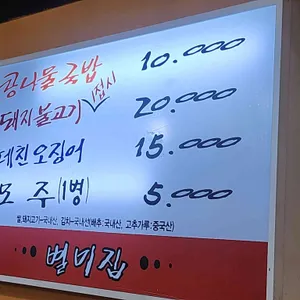 콩나물국밥 10.000
돼지불고기 접시 20.000
데친오징어 15.000
모 주(1병) 5.000
쌀,돼지고기-국내산, 김치-국내산(배추:국내산, 고추가루:중국산)
벌미집